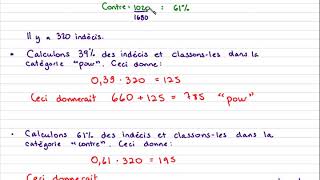 Contre: 1020 : 61%
1680
Il y a 320 indécis.
• Calculons 39% des indécis et classons-les dans la
catégorie "pour". Ceci donne:
0,39 · 320 = 125
Ceci donnerait 660 + 125 = 785 "pour"
• Calculons 61% des indécis et classons-les dans la
catégorie "contre". Ceci donne:
0,61 · 320 = 195
Ceci donnerait